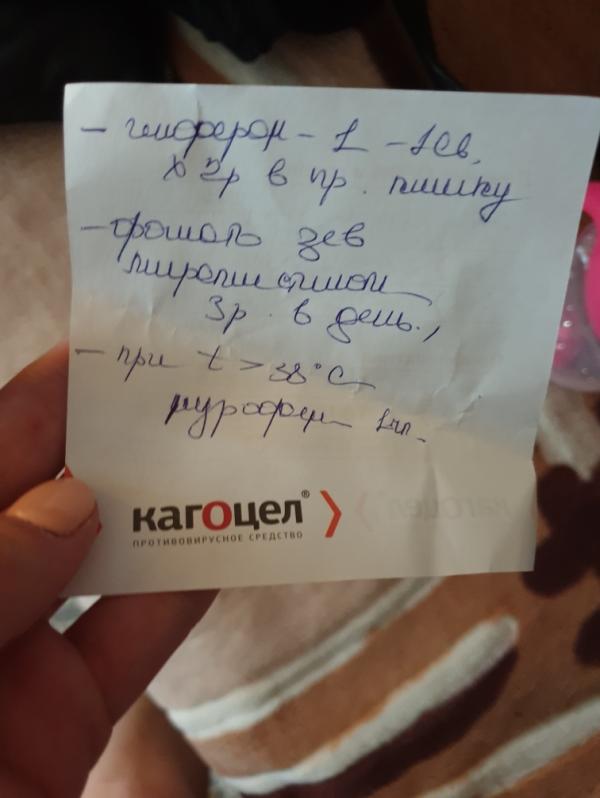 - генферон - 1 - 1св,
х 2р в пр. кишку
- орошать зев
мирамистином
3р. в день.,
- при t > 38°C
нурофен
кагоцел®
ПРОТИВОВИРУСНОЕ СРЕДСТВО